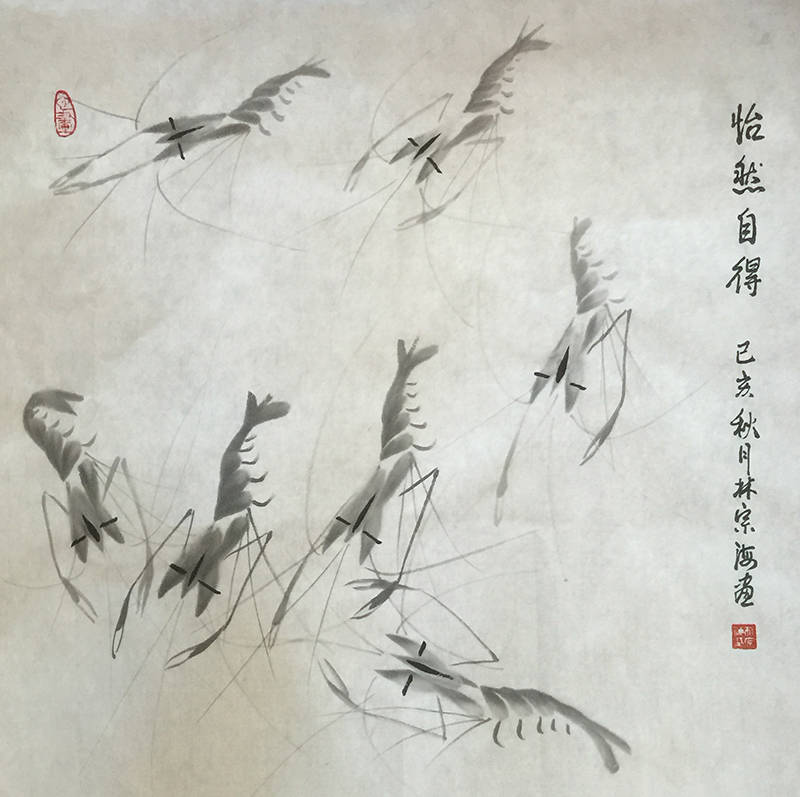 怡然自得 己亥秋月林宗海画